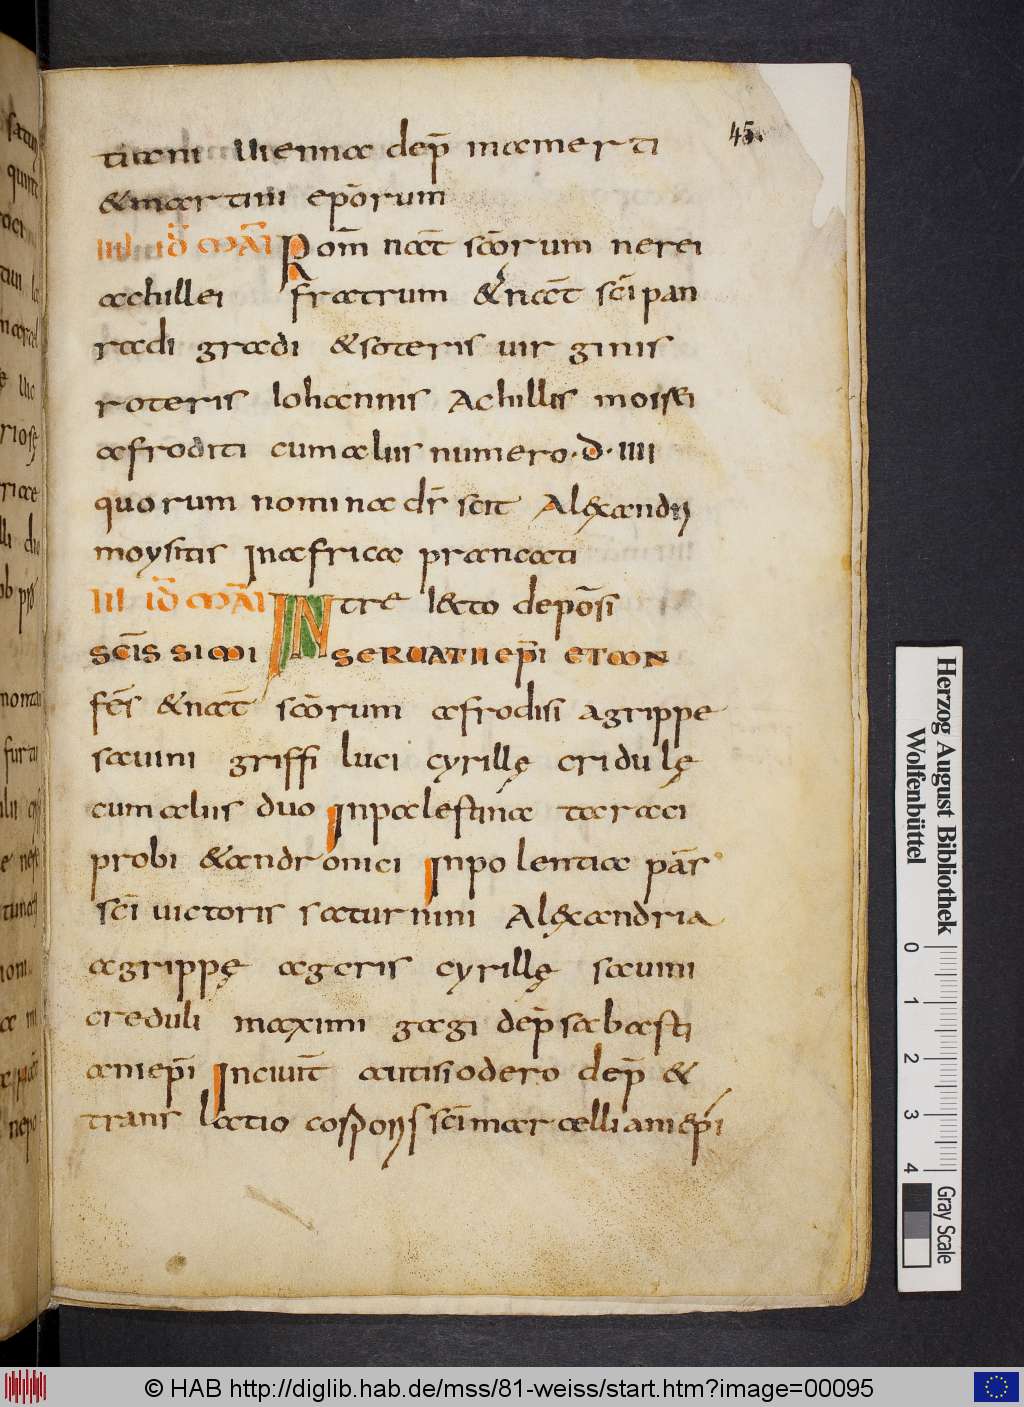 45.
tiani uiennae dep̄ mamerti
& martini ep̄orum
IIII id̄ mai Rom̄ nat̄ sc̄orum nerei
achillei fratrum & nat̄ sc̄i pan
radi gradi & soteris uirginis
roteris Iohannis Achillis moisei
afroditi cum aliis numero · d · IIII
quorum nomina dn̄s scit Alexandri
moysitis In africa prancati
III id̄ mai In trelecto depos̄i
sc̄issimi seruatii ep̄i et con
fes̄ & nat̄ sc̄orum afrodisi agrippe
sauini griffi luci cyrillę cridulę
cum aliis duo In palestina taraci
probi & andronici In polentia pas̄
sc̄i uictoris saturnini Alexandria
agrippę ageris cyrillę sauini
creduli maximi gagi dep̄ sabasti
ani ep̄i In ciuit̄ autisiodero dep̄ &
translatio corporis sc̄i marcelliani ep̄i
Herzog August Bibliothek
Wolfenbüttel
0 1 2 3 4
Gray Scale
© HAB http://diglib.hab.de/mss/81-weiss/start.htm?image=00095